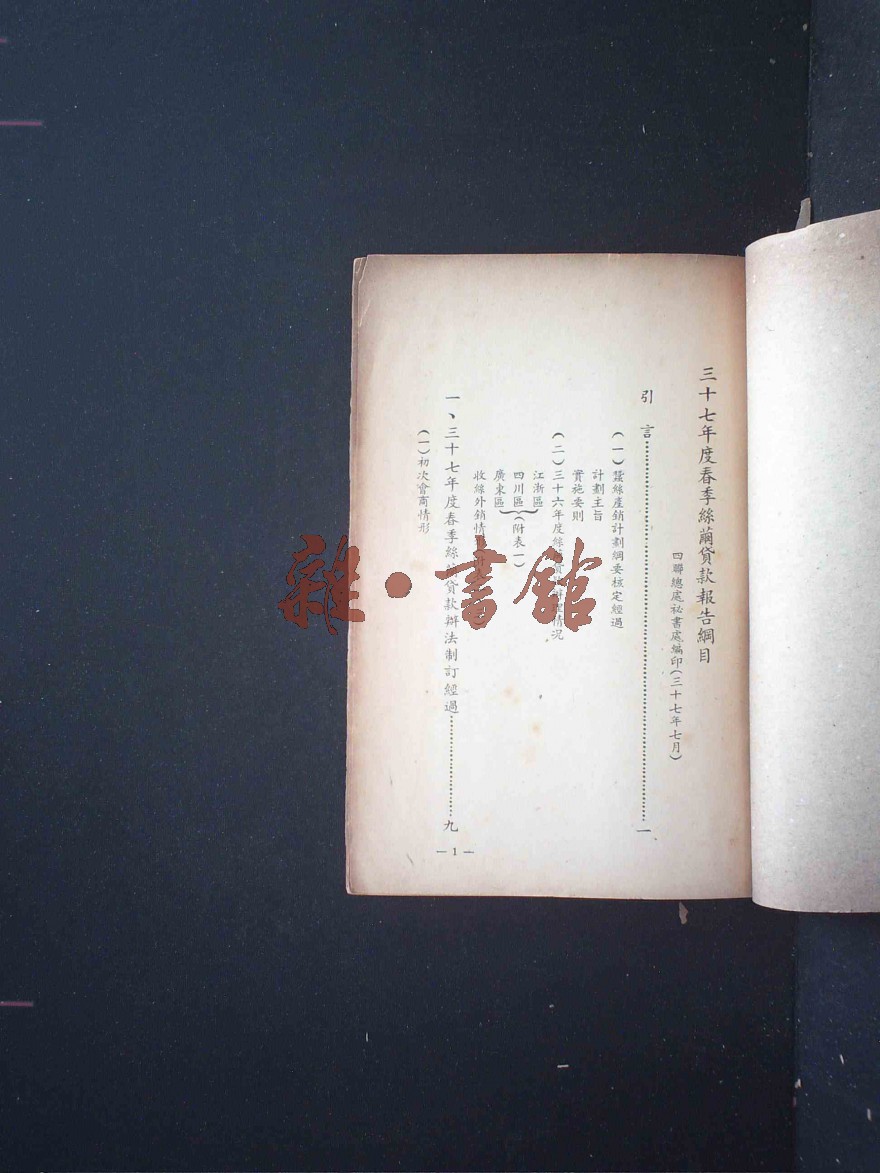 三十七年度春季絲繭貸款報告綱目
四聯總處祕書處編印(三十七年七月)
引言……一
(一)蠶絲產銷計劃綱要核定經過
計劃主旨
實施要則
(二)三十六年度絲 辦理情況
江浙區
四川區(附表一)
廣東區
收絲外銷情
一、三十七年度春季絲繭貸款辦法制訂經過……九
(一)初次會商情形
—1—
雜·書館